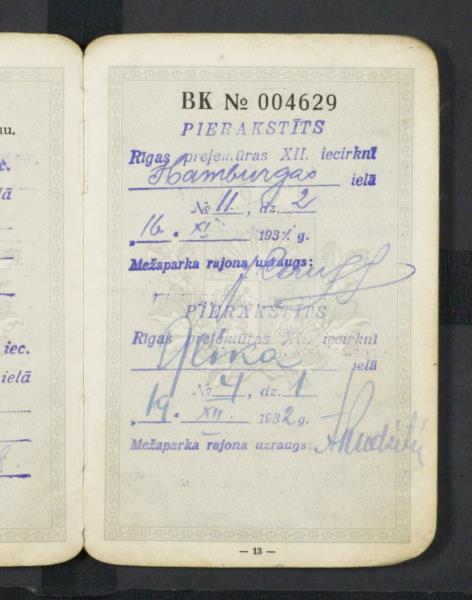 nu.
c.
lā
iec.
ielā
BK № 004629
PIERAKSTĪTS
Rīgas prefektūras XII. iecirknī
Hamburgas ielā
№ 11, dz. 2
16. XI 193 g.
Mežaparka rajona uzraugs:
PIERAKSTĪTS
Rīgas prefektūras XII. iecirknī
ielā
№ 4, dz. 1
19. XII 1932 g.
Mežaparka rajona uzraugs:
— 13 —